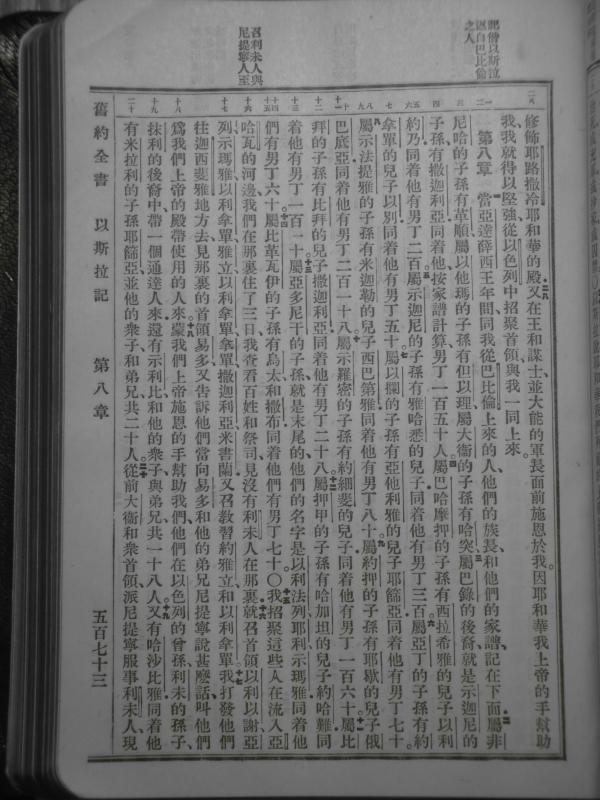 記偕以斯拉
返自巴比倫
之人
召利未人與
尼提寧人至
修飾耶路撒冷耶和華的殿又在王和謀士並大能的軍長面前施恩於我因耶和華我上帝的手幫助
我我就得以堅強從以色列中招聚首領與我一同上來
第八章 當亞達薛西王年間同我從巴比倫上來的人他們的族長和他們的家譜記在下面屬非
尼哈的子孫有革順屬以他瑪的子孫有但以理屬大衞的子孫有哈突屬巴錄的後裔就是示迦尼的
子孫有撒迦利亞同着他按家譜計算男丁一百五十人屬巴哈摩押的子孫有西拉希雅的兒子以利
約乃同着他有男丁二百屬示迦尼的子孫有雅哈悉的兒子同着他有男丁三百屬亞丁的子孫有約
拿單的兒子以別同着他有男丁五十屬以攔的子孫有亞他利雅的兒子耶篩亞同着他有男丁七十
屬示法提雅的子孫有米迦勒的兒子西巴第雅同着他有男丁八十屬約押的子孫有耶歇的兒子俄
巴底亞同着他有男丁二百一十八屬示羅密的子孫有約細斐的兒子同着他有男丁一百六十屬比
拜的子孫有比拜的兒子撒迦利亞同着他有男丁二十八屬押甲的子孫有哈加坦的兒子約哈難同
着他有男丁一百一十屬亞多尼干的子孫就是末尾的他們的名字是以利法列耶利示瑪雅同着他
們有男丁六十屬比革瓦伊的子孫有烏太和撒布同着他們有男丁七十〇我招聚這些人在流入亞
哈瓦的河邊我們在那裏住了三日我查看百姓和祭司見沒有利未人在那裏就召首領以利以謝亞
列示瑪雅以利拿單雅立以利拿單拿單撒迦利亞米書蘭又召教習約雅立和以利拿單我打發他們
往迦西斐雅地方去見那裏的首領易多又告訴他們當向易多和他的弟兄尼提寧說甚麼話叫他們
爲我們上帝的殿帶使用的人來蒙我們上帝施恩的手幫助我們他們在以色列的曾孫利未的孫子
抹利的後裔中帶一個通達人來還有示利比和他的衆子與弟兄共一十八人又有哈沙比雅同着他
有米拉利的子孫耶篩亞並他的衆子和弟兄共二十人從前大衞和衆首領派尼提寧服事利未人現
舊約全書 以斯拉記 第八章 五百七十三